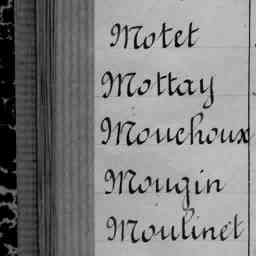 Motet
Mottay
Mouchoux
Mougin
Moulinet